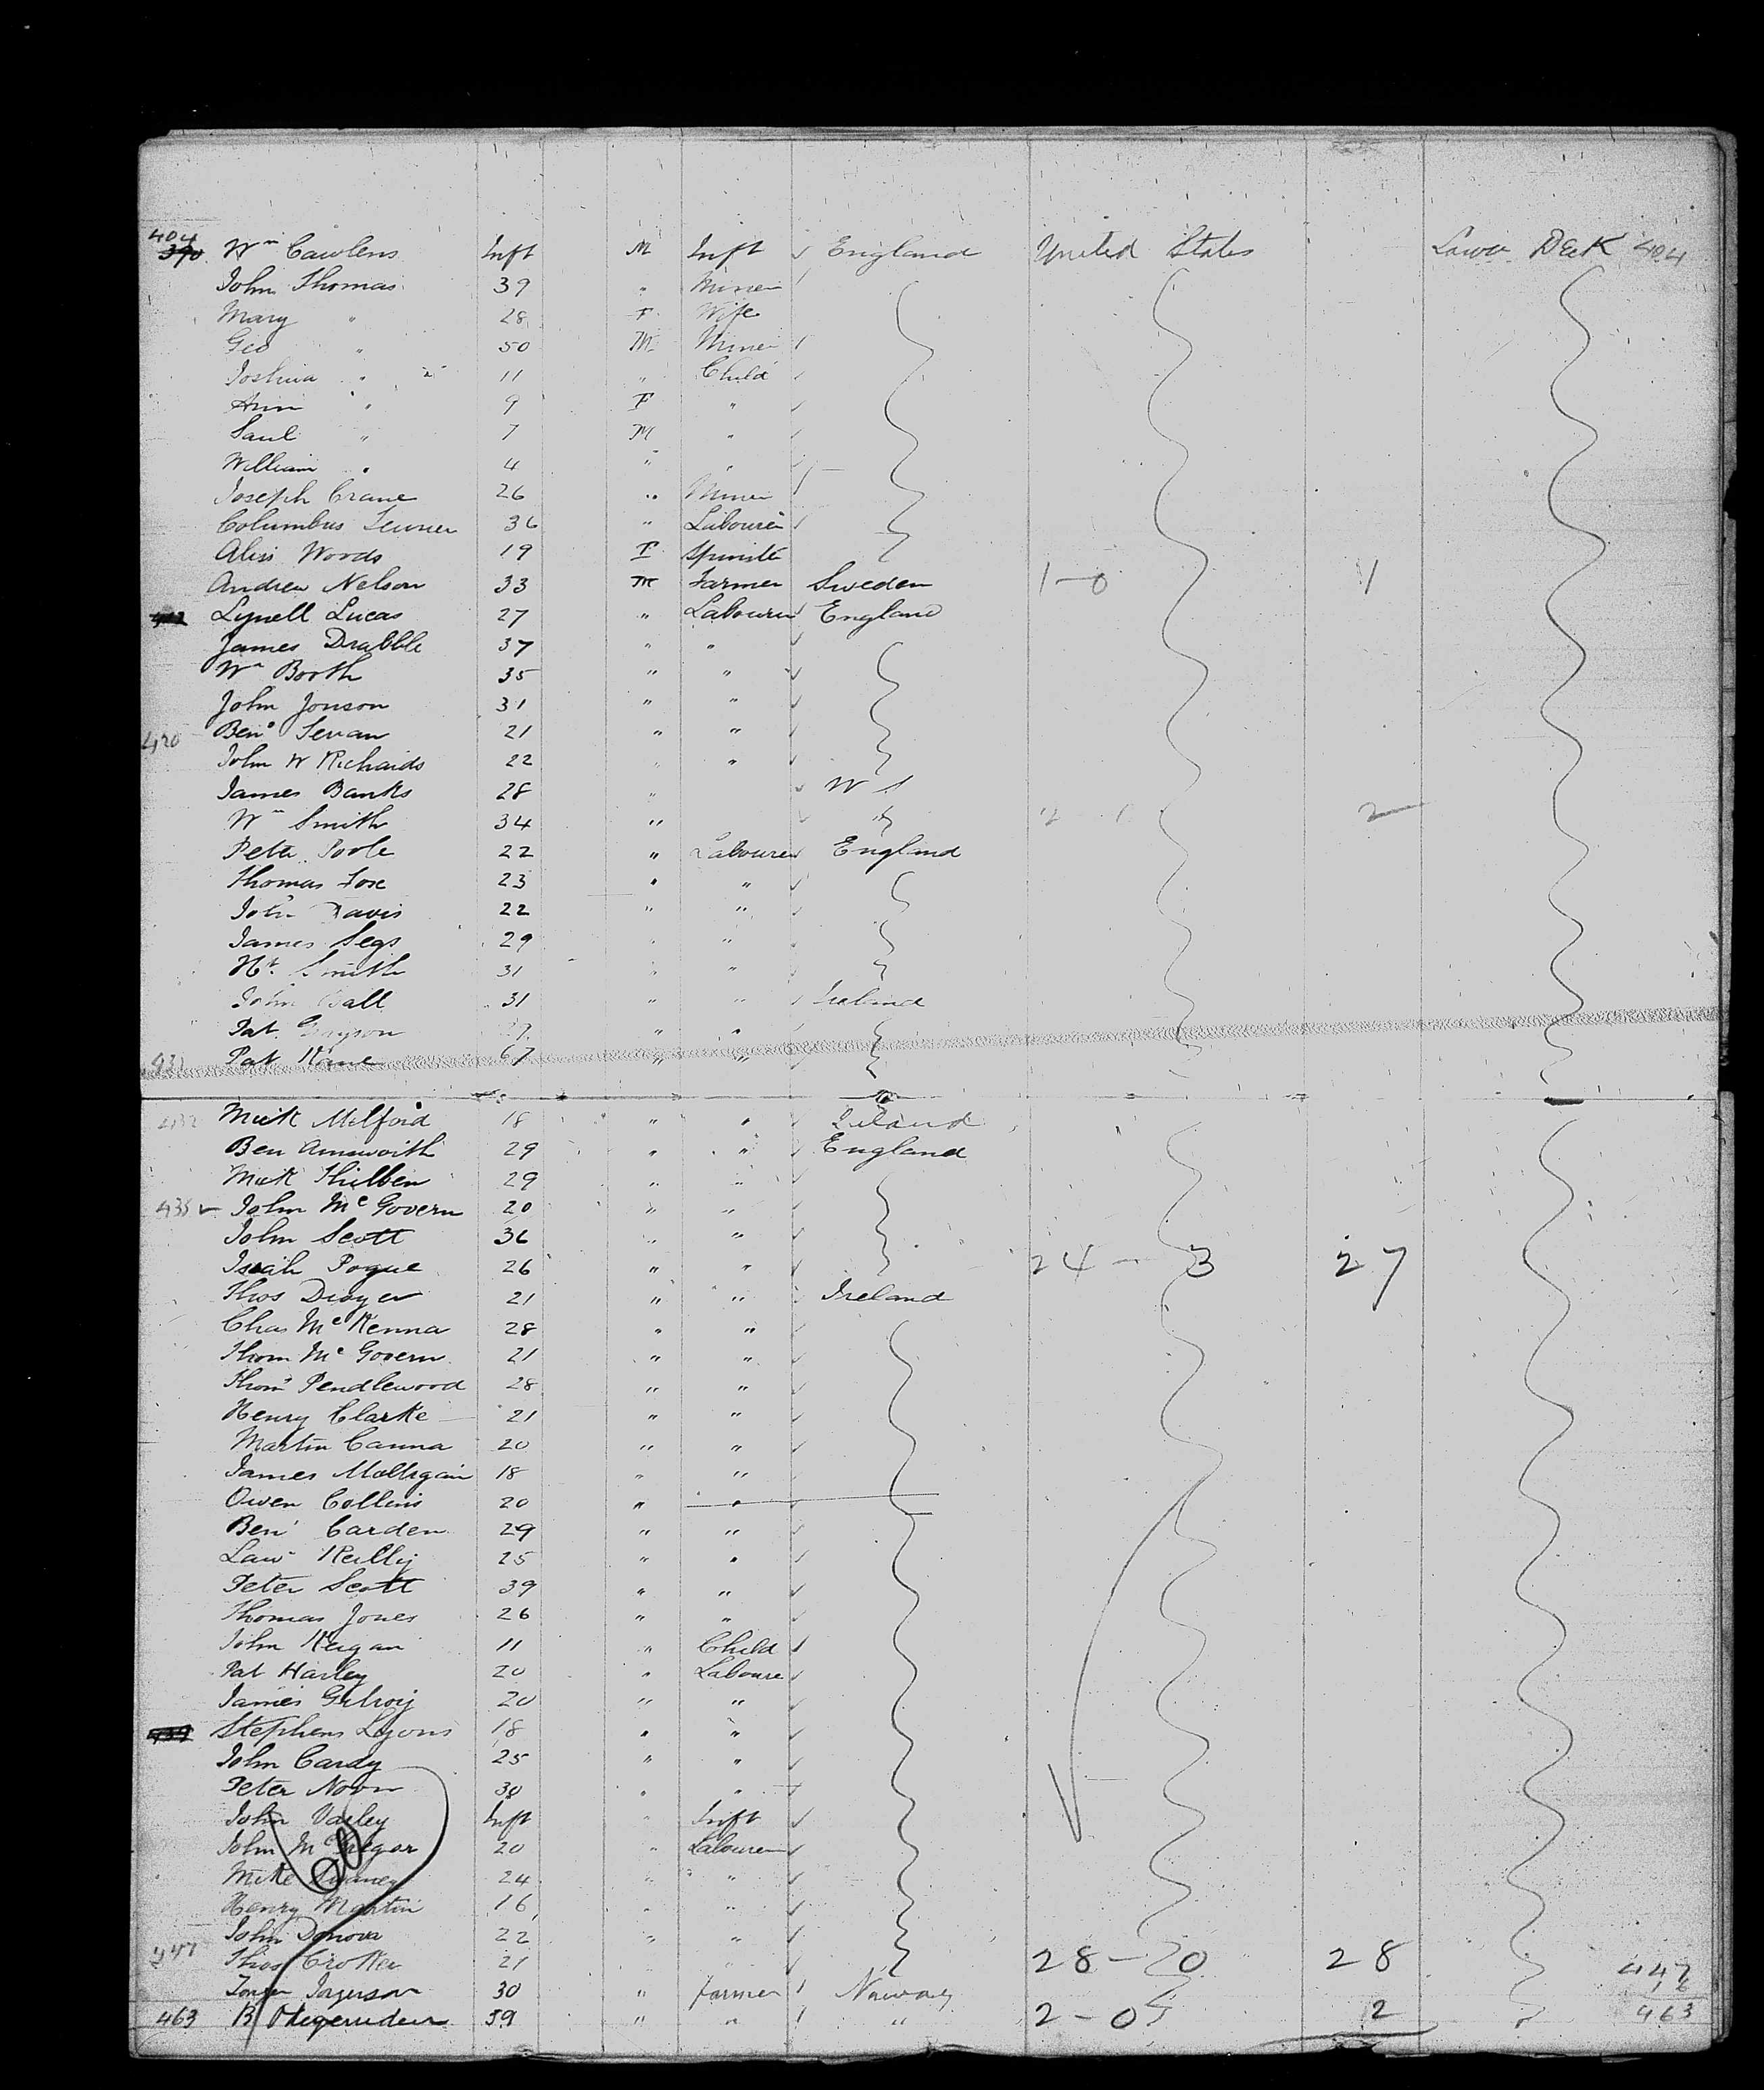 404
390 Wm Cawlens Inft M Inft England United States Lower Deck 404
John Thomas 39 " Miner
Mary " 28 F Wife
Geo " 50 M Miner
Joshua " 11 " Child
Ann " 9 F "
Saul " 7 M "
William " 4 " "
Joseph Crane 26 " Miner
Columbus 36 " Labourer
Alis Woods 19 F Spinster
Andrew Nelson 33 M Farmer Sweden 1-0 1
Lynell Lucas 27 " Labourer England
James Drabble 37 " "
Wm Booth 35 " "
John Jonson 31 " "
420 Benj 21 " "
John W Richards 22 " "
James Banks 28 "
Wm Smith 34 " 2
Peter Poole 22 " Labourer England
Thomas Fox 23 " "
John Davis 22 " "
James Segs 29 " "
Smith 31 " "
John Ball 31 " " Ireland
Pat " "
431 Pat Kane 67 " "
432 Mick Milford 18 " " Ireland
Ben Ainsworth 29 " " England
Mick 29 " "
435 John McGovern 20 " "
John Scott 36 " "
Isiah Pogue 26 " " 24 - 3 27
Thos Dwyer 21 " " Ireland
Chas McKenna 28 " "
Thom McGovern 21 " "
Thom Pendlewood 28 " "
Henry Clarke 21 " "
Martin Canna 20 " "
James Mulligan 18 " "
Owen Collins 20 " "
Ben Carden 29 " "
Law Reilly 25 " "
Peter Scott 39 " "
Thomas Jones 26 " "
John Keegan 11 " Child
Pat Harley 20 " Laboure
James Gilroy 20 " "
Stephens Lyons 18 " "
John Cardy 25 " "
Peter Noon 30 " "
John Varley Inft " Inft
John McGregor 20 " Labourer
Mike 24 " "
Henry Martin 16 " "
John Donova 22 " "
447 Thos Crotker 21 " " 28-0 28 447
30 " Farmer Norway
463 B 59 " " " 2-0 2 463